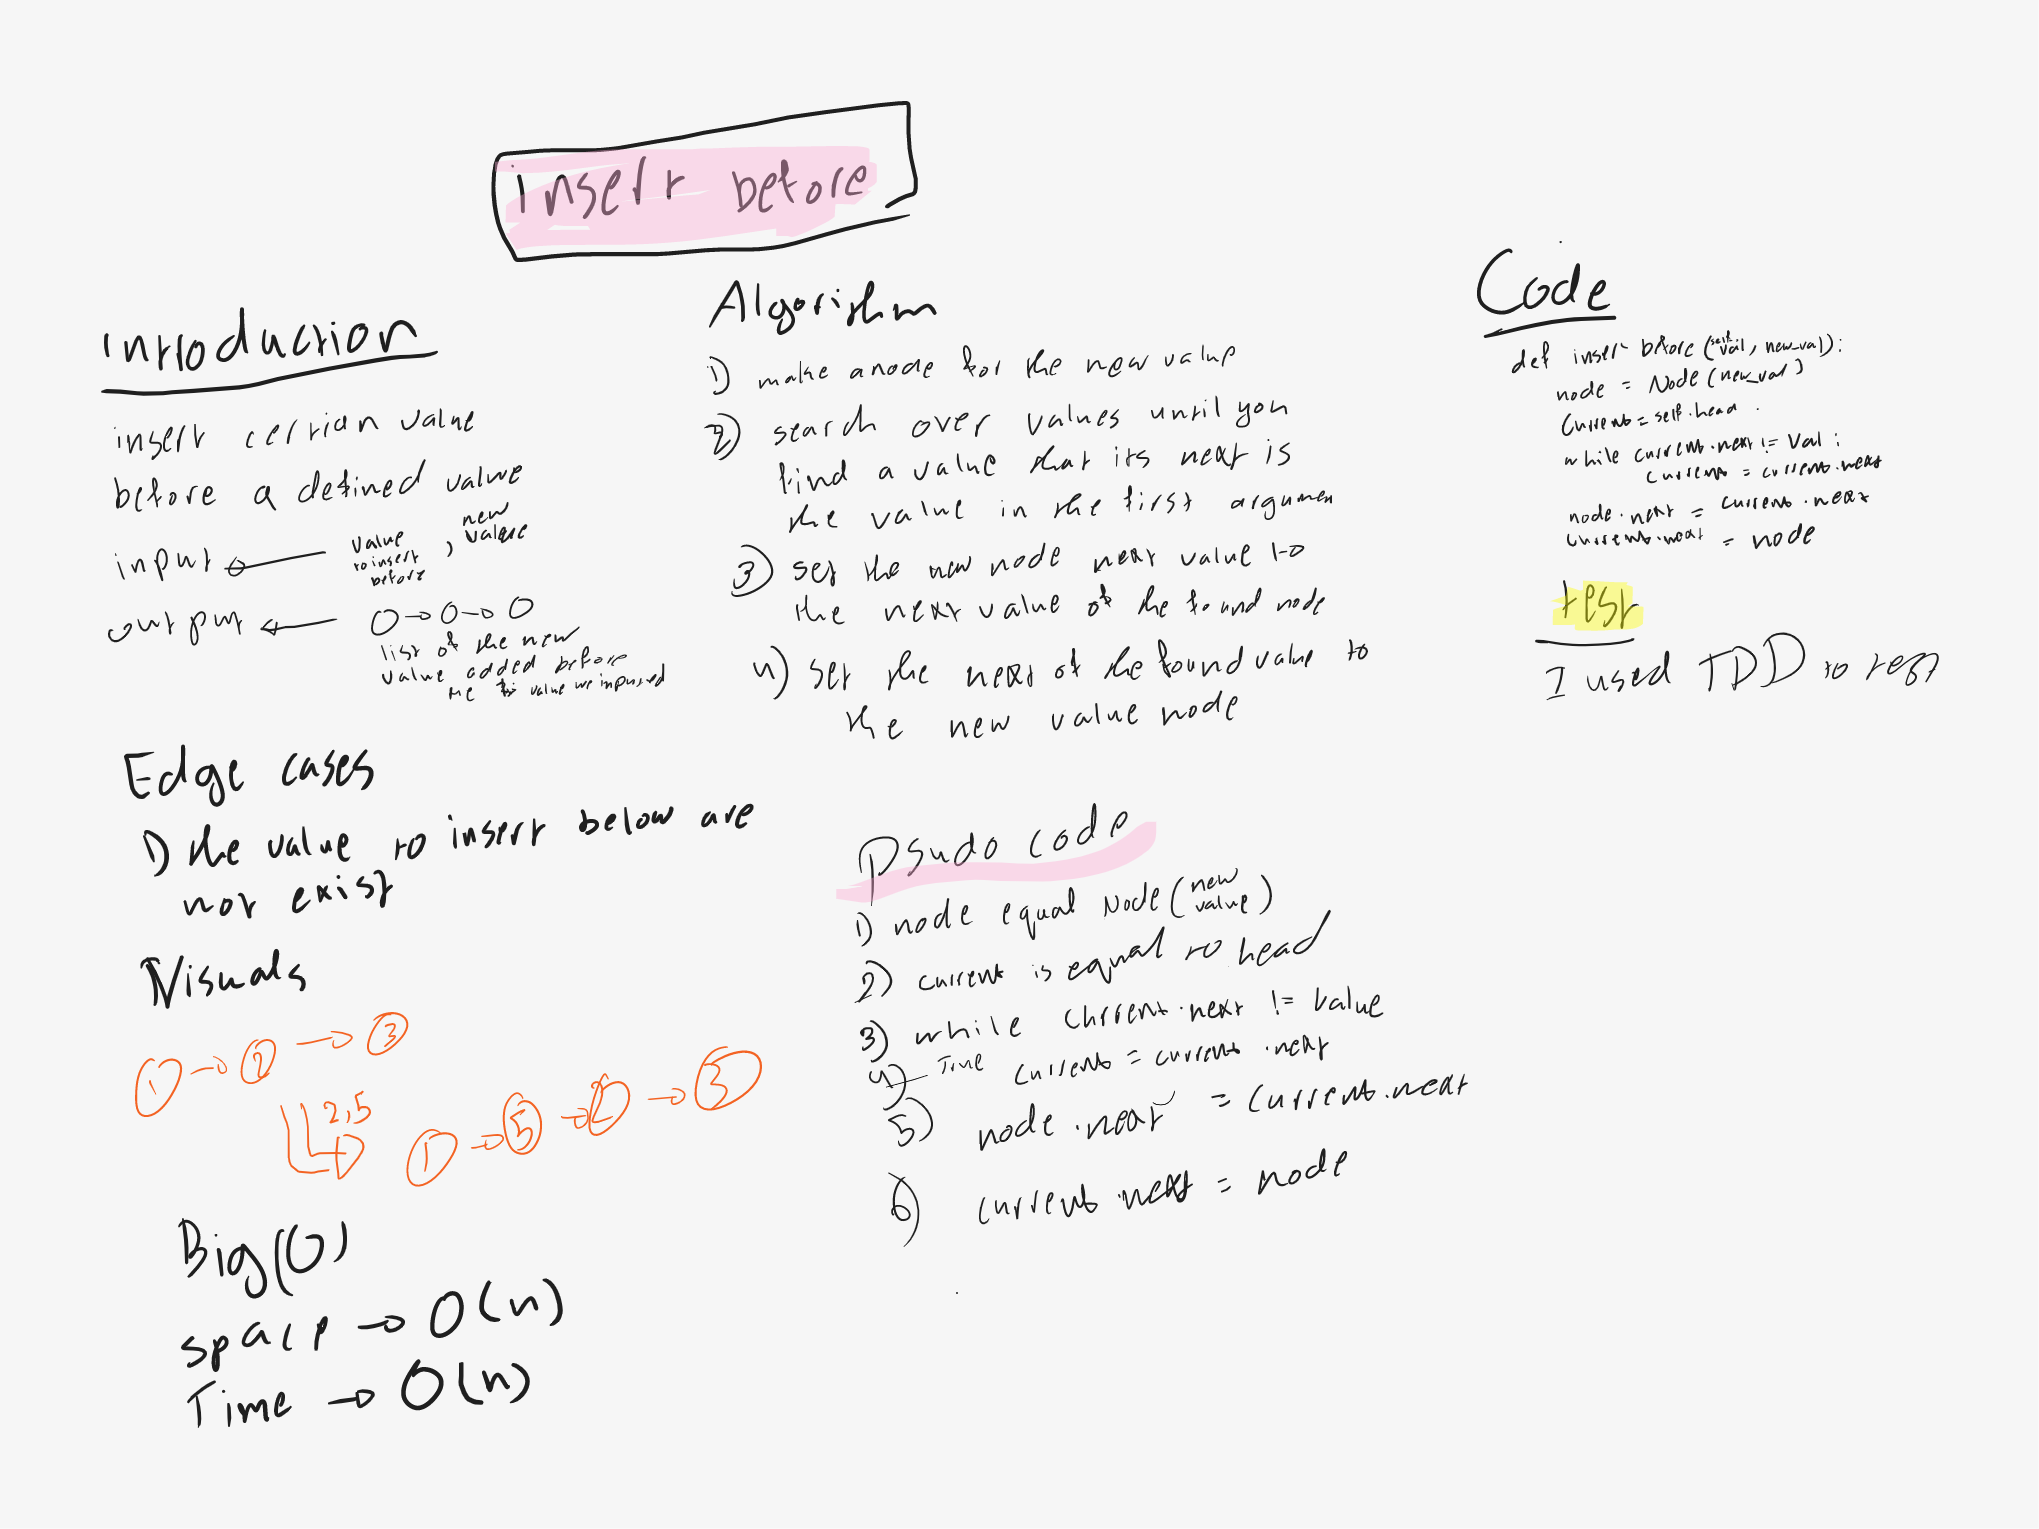 insert before
introduction
insert certian value
before a defined value
input
value
to insert
before
, new
value
output
O → O → O
list of the new
value added before
the value we inputed
Edge cases
1) the value to insert below are
not exist
Visuals
1 → 2 → 3
2,5
1 → 5 → 2 → 3
Big(O)
space → O(n)
Time → O(n)
Algorithm
1) make a node for the new value
2) search over values until you
find a value that its next is
the value in the first argumen
3) set the new node next value to
the next value of the found node
4) set the next of the found value to
the new value node
Psudo code
1) node equal Node(new value)
2) current is equal to head
3) while current.next != value
4) True current = current.next
5) node.next = current.next
6) current.next = node
Code
def insert before(self val, new_val):
node = Node(new_val)
Current = self.head
while current.next != val:
current = current.next
node.next = current.next
current.next = node
test
I used TDD to test